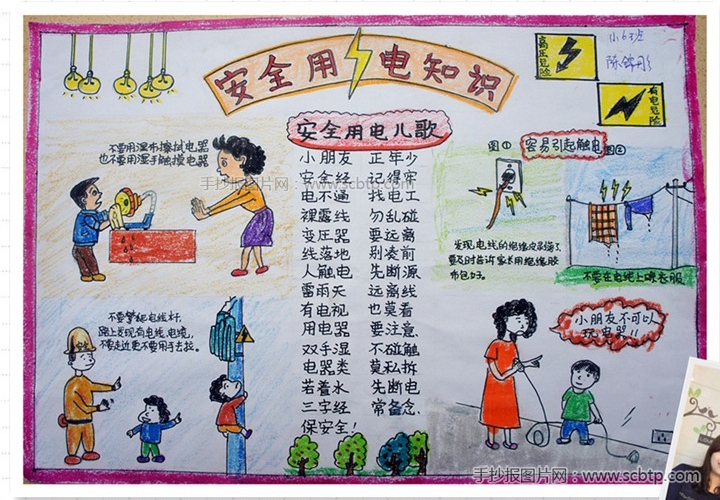 安全用电知识
高压危险
小63班
陈锦彤
有电危险
安全用电儿歌
小朋友 正年少
安全经 记得牢
电不通 找电工
裸露线 勿乱碰
变压器 要远离
线落地 别凌前
人触电 先断源
雷雨天 远离线
有电视 也莫看
用电器 要注意
双手湿 不碰触
电器类 莫私拆
若着水 先断电
三字经 常备念
保安全!
不要用湿布擦拭电器
也不要用湿手触摸电器
手抄报图片网:www.scbtp.com
图① 容易引起触电 图②
发现电线的绝缘皮
要及时告诉家长用绝缘胶
布包好。
不要在电线上晾衣服
不要攀爬电线杆,
路上发现有电线,电缆,
不要走近更不要用手去拉。
小朋友不可以
玩电器!!
手抄报图片网:www.scbtp.com